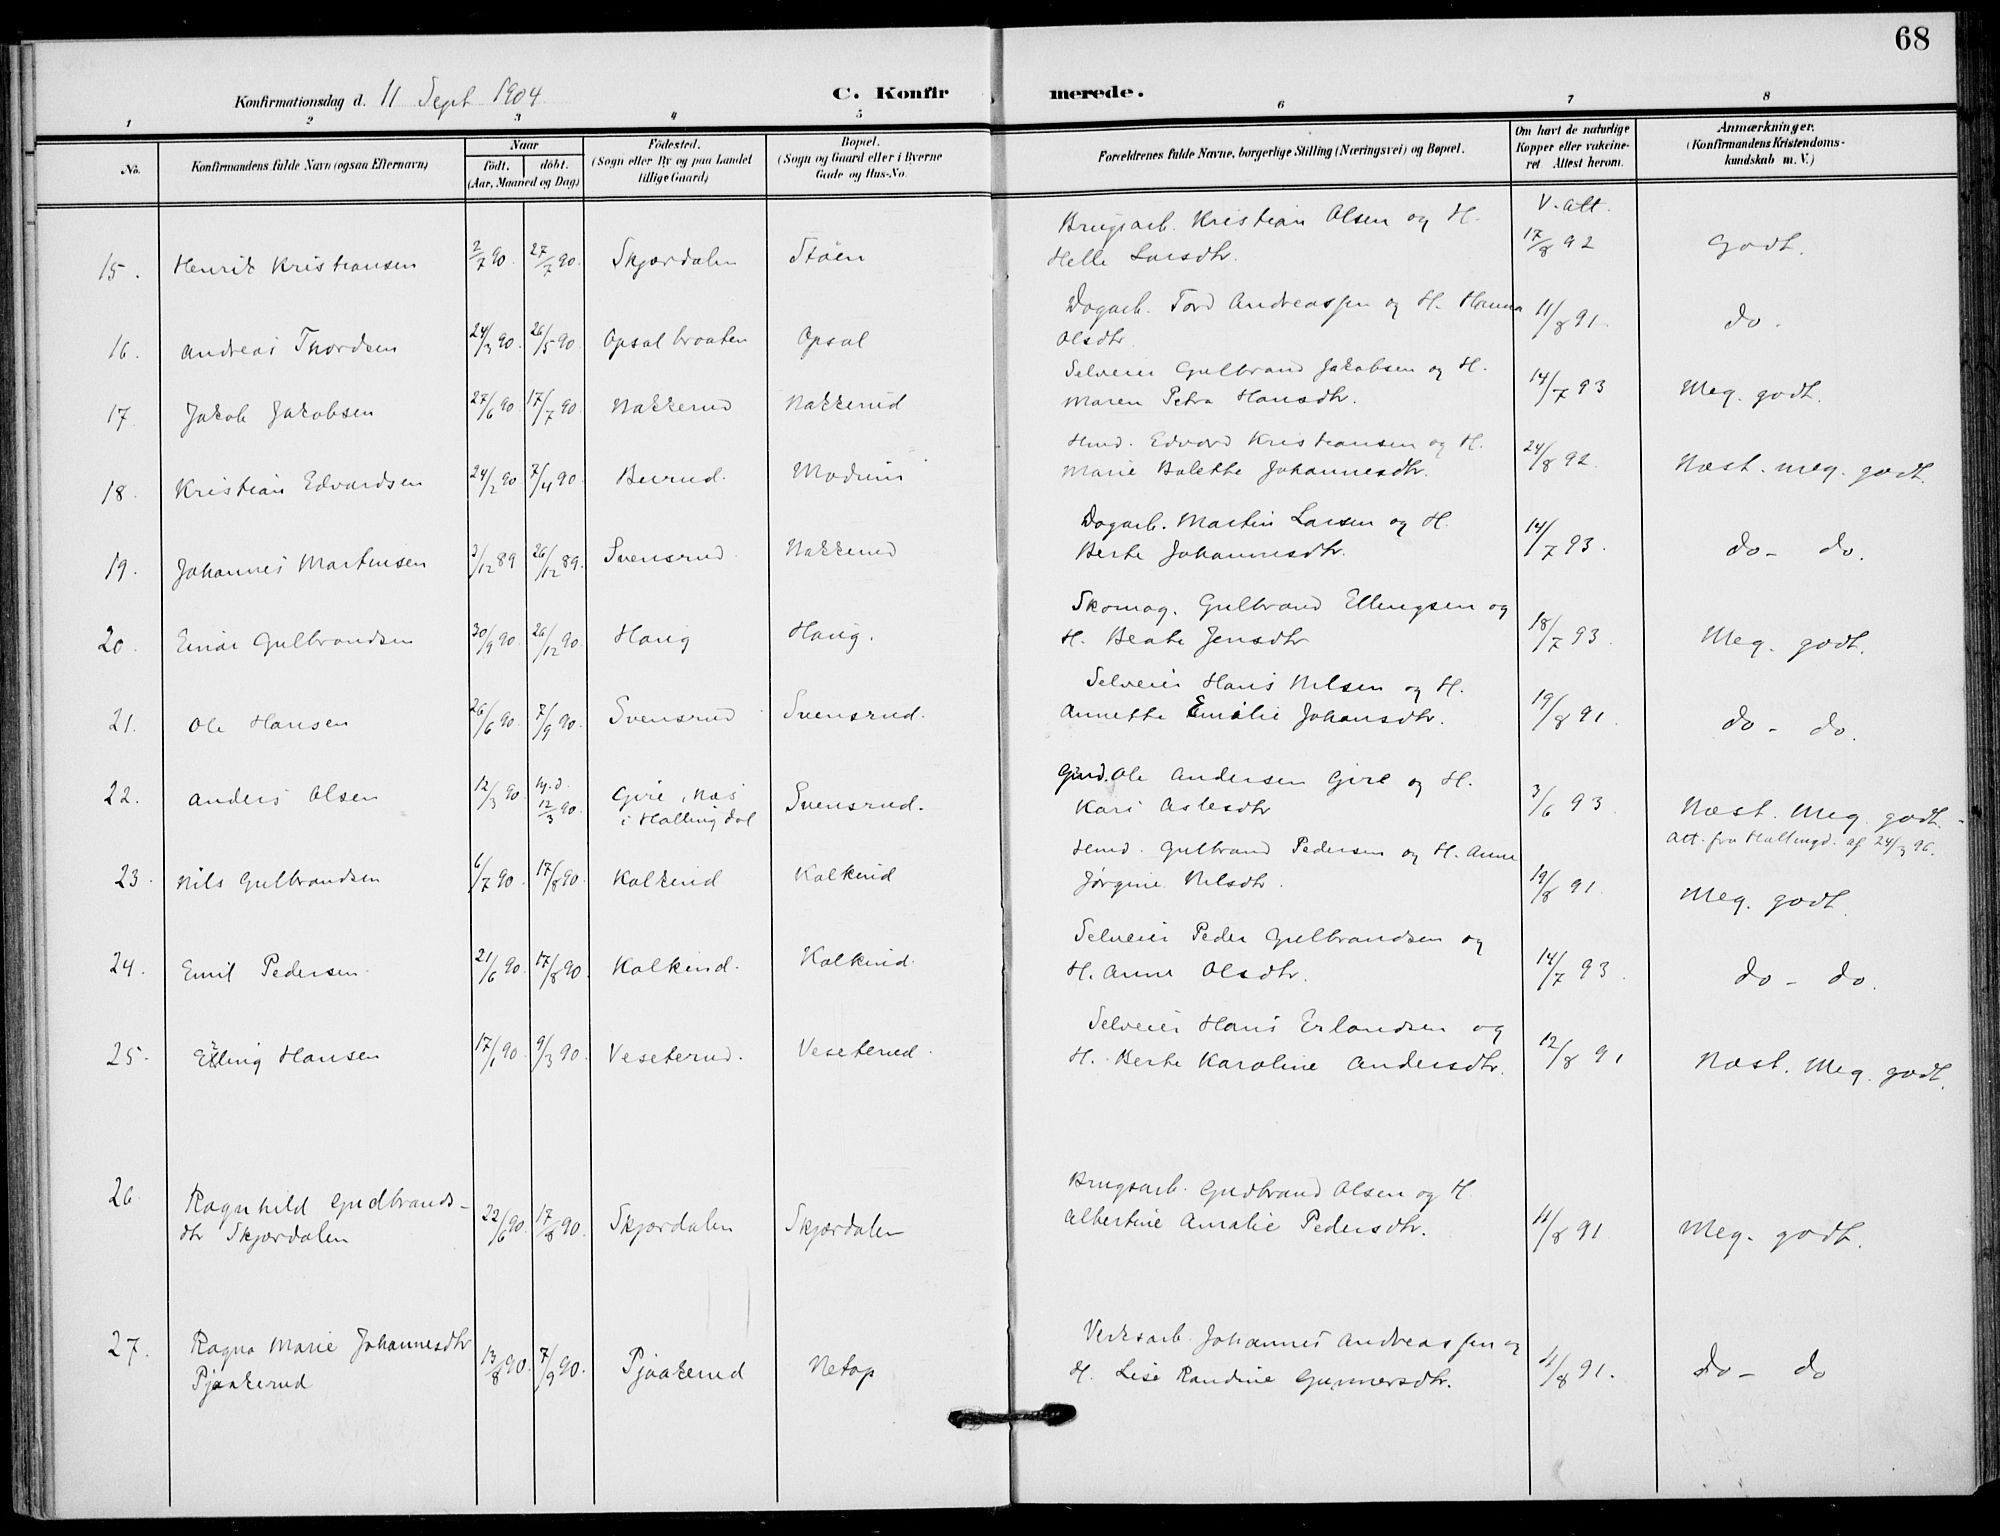 68
Konfirmationsdag d. 11 Sept 1904
C. Konfirmerede.
1 2 3 4 5 6 7 8
No.
Konfirmandens fulde Navn (ogsaa Efternavn)
Naar
født. døbt.
(Aar, Maaned og Dag)
Fødested.
(Sogn eller By og paa Landet
tillige Gaard)
Bopæl.
(Sogn og Gaard eller i Byerne
Gade og Hus-No.
Forældrenes fulde Navne, borgerlige Stilling (Næringsvei) og Bopæl.
Om havt de naturlige
Kopper eller vakcine-
ret Attest herom.
Anmærkninger.
(Konfirmandens Kristendoms-
kundskab m. V.)
15. Henrik Kristiansen 2/7 90. 27/7 90. Skjærdalen Støen
Brugsarb. Kristian Olsen og H.
Helle Larsdtr.
V. Att.
17/8 92 Godt.
16. Andreas Thordsen 24/3 90. 26/5 90. Opsalbraaten Opsal
Dagarb. Tord Andreassen og H. Hanna
Olsdtr.
11/8 91. do.
17. Jakob Jakobsen 27/6 90. 17/7 90. Nakkerud Nakkerud
Selveier Gulbrand Jakobsen og H.
Maren Petra Hansdtr.
14/7 93 Meg. godt.
18. Kristian Edvardsen 24/2 90 7/4 90. Burud. Modum
Hmd. Edvard Kristiansen og H.
Marie Bolette Johannesdtr.
24/8 92. Næst. meg. godt.
19. Johannes Martinsen 3/12 89 26/12 89. Svensrud. Nakkerud
Dagarb. Martin Larsen og H.
Berte Johannesdtr.
14/7 93. do - do.
20. Einar Gulbrandsen 30/9 90. 26/12 90. Haug Haug.
Skomag. Gulbrand Ellingsen og
H. Beate Jensdtr
18/7 93. Meg. godt.
21. Ole Hansen 26/6 90. 7/9 90. Svensrud Svensrud.
Selveier Hans Nilsen og H.
Annette Emilie Johansdtr.
19/8 91. do - do.
22. Anders Olsen 12/3 90. hj.d. 12/3 90. Gire, Næs
i Hallingdal
Svensrud.
Gmd. Ole Andersen Gire og H.
Kari Aslesdtr
3/6 93 Næst. Meg. godt.
Att. fra Hallingd. af 24/3 96.
23. Nils Gulbrandsen 6/7 90. 17/8 90. Kalkerud Kalkerud
Hmd. Gulbrand Pedersen og H. Anne
Jørgine Nilsdtr.
19/8 91. Meg. godt.
24. Emil Pedersen 21/6 90. 17/8 90. Kalkerud. Kalkerud.
Selveier Peder Gulbrandsen og
H. Anne Olsdtr.
14/7 93. do - do.
25. Elling Hansen 17/1 90. 9/3 90. Veseterud. Veseterud.
Selveier Hans Erlandsen og
H. Berte Karoline Andersdtr.
12/8 91 Næst. Meg. godt.
26. Ragnhild Gudbrands-
dtr Skjærdalen
22/6 90. 17/8 90. Skjærdalen Skjærdalen
Brugsarb. Gudbrand Olsen og H.
Albertine Amalie Pedersdtr.
11/8 91. Meg. godt.
27. Ragna Marie Johannesdtr
Pjaakerud
13/8 90. 7/9 90. Pjaakerud Netop
Verksarb. Johannes Andreassen og
H. Lise Randine Gunnersdtr.
11/8 91. do - do